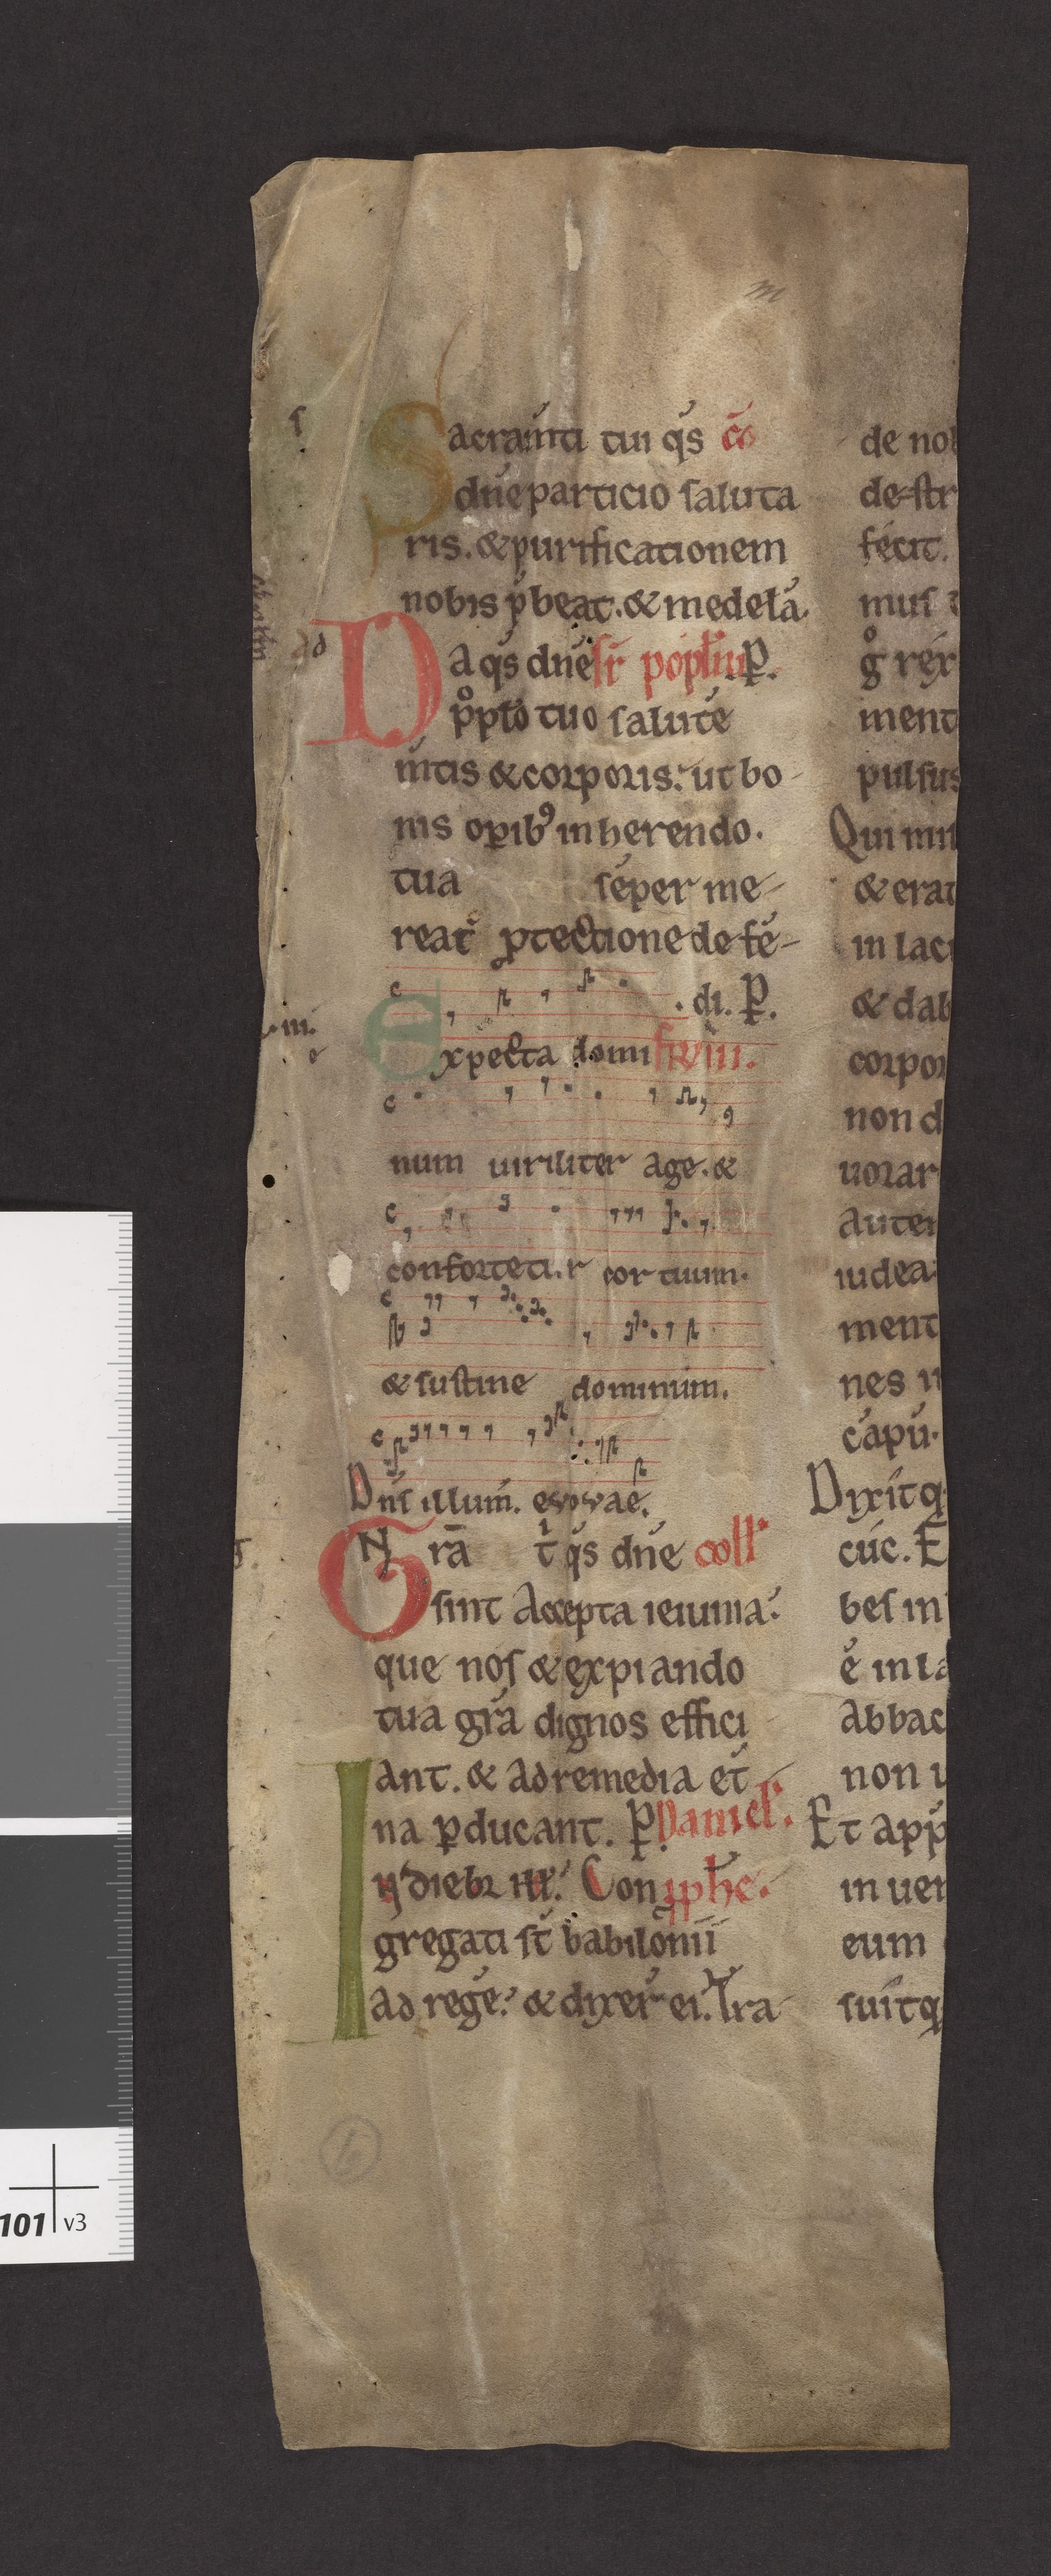 Sacram̅ti tui q̅s c̅o
dn̅e particio saluta
ris. & purificationem
nobis p̅beat. & medela̅.
Da q̅s dn̅e sr̅ popl̅m P̱.
pºplo tuo salute̅
m̅tis & corporis. ut bo-
nis opib⁹ inherendo.
tua semper me-
reat᷑ ꝓtectione defe̅-
di. P̱.
Expecta domi fr̅ iii.
num uiriliter age. &
confortetur cor tuum.
& sustine dominum.
Dn̅s illum̅. evovae.
Nr̅a t̅ q̅s dn̅e coll̅
sint accepta ieiunia:
que nos & expiando
tua gr̅a dignos effici
ant. & ad remedia et̅
na ꝑducant. P̱. Daniel̅.
In diebꝫ ill̅. Con ꝓph̅e.
gregati st̅ babilonii
ad rege̅. & dixer̅ ei. Tra
de nob
de-str
fecit.
mus
gº rex
ment
pulsus
Qui mis
& erat
in lacu
& dab
corpor
non d
uorar
Autem
iudea
ment
nes i
capu
Dixitq
cuc. E
bes in
e̅ in la
Abbac
non u
Et app
in uen
eum
suitq
m
ad
.iii.
101 v3